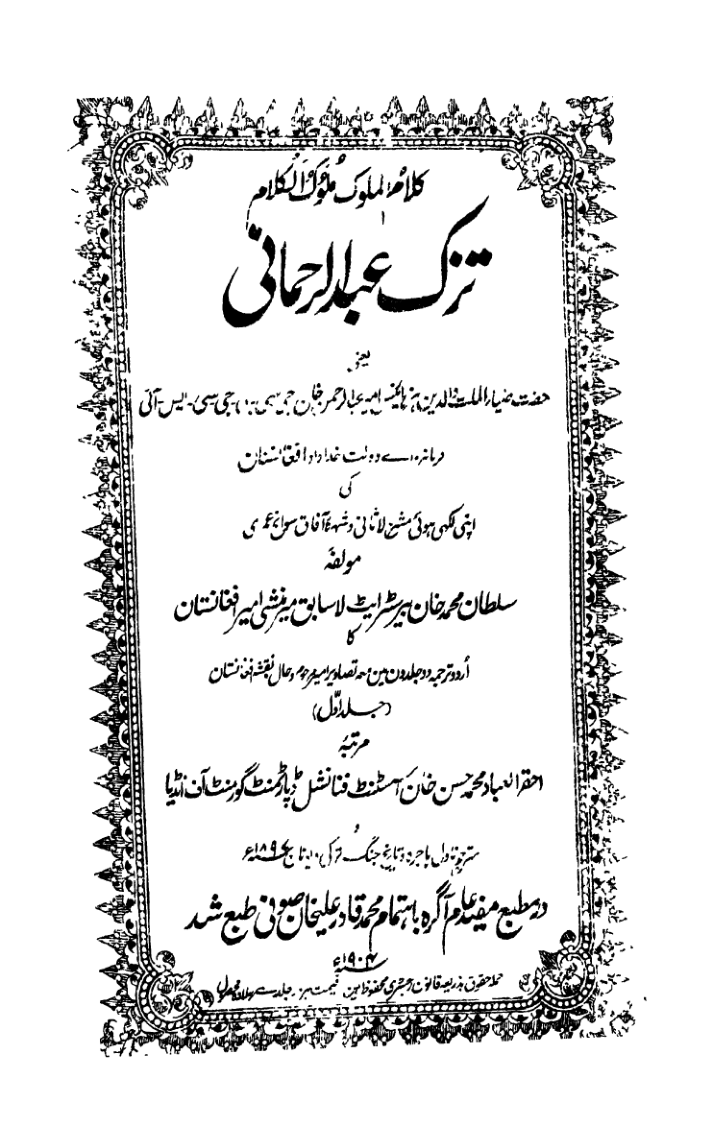 کلام الملوک ملوک الکلام
تزک عبدالرحمانی
یعنی
حضرت ضیاء الملت والدین ہز ہائینس امیر عبدالرحمن خان جی سی بی، جی۔سی۔ایس۔آئی
فرمانروائے دولت خداداد افغانستان
کی
اپنی لکھی ہوئی مشرح لاثانی و شہرۂ آفاق سوانح عمری
مولفہ
سلطان محمد خان بیرسٹرایٹ لا سابق میرمنشی امیر افغانستان
کا
اردو ترجمہ دو جلدون مین معہ تصاویر امیر مرحوم و حال نقشہ افغانستان
(جلد اوّل)
مرتبہ
احقر العباد محمد حسن خان اسسٹنٹ فنانشل ڈپارٹمنٹ گورمنٹ آف انڈیا
و
مترجم ناول ہاجرہ و تاریخ جنگ ترکی و یونان ۱۸۹۷ء
در مطبع مفید عام آگرہ باہتمام محمد قادر علیخان صوفی طبع شد
جملہ حقوق بذریعہ قانون رجسٹری محفوظ ہین قیمت ہر جلد